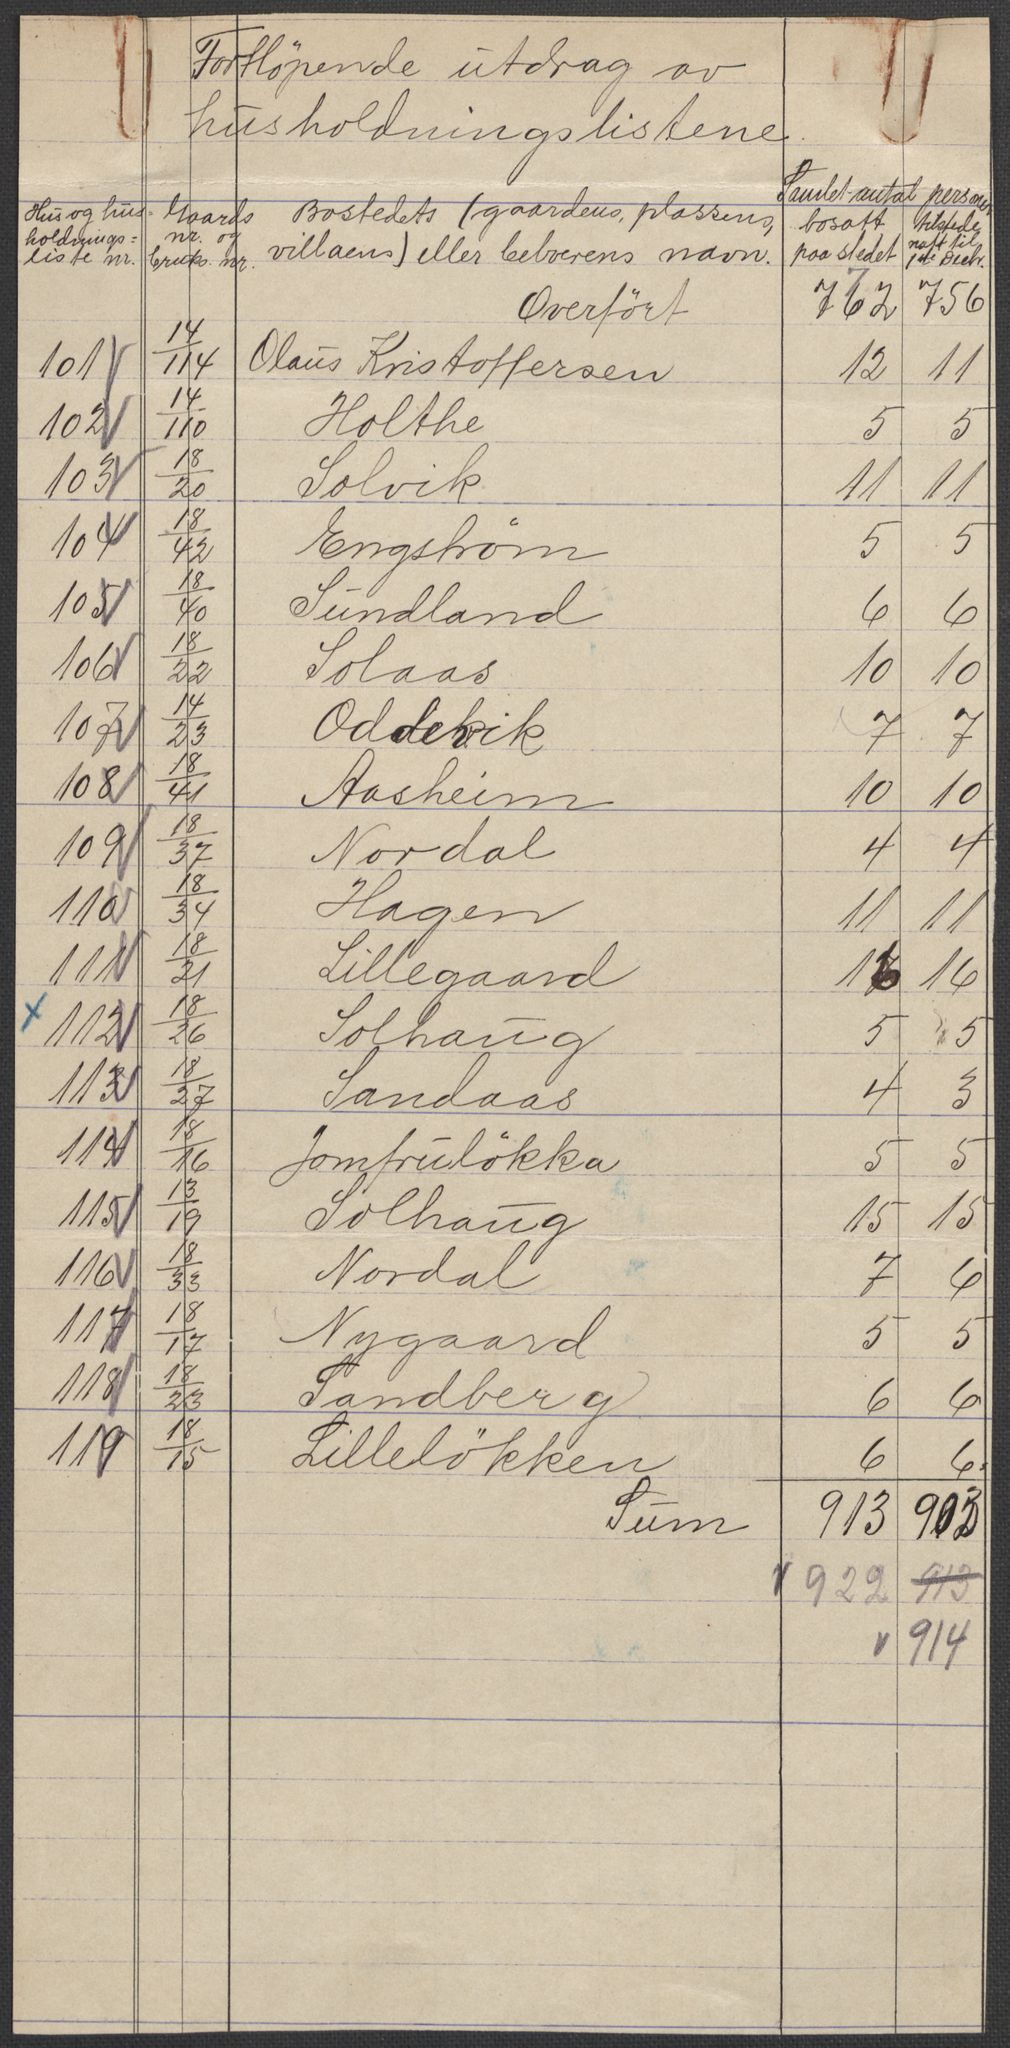 Fortlöpende utdrag av
husholdningslistene.
Samlet antal personer
Hus og hus- Gaards Bostedets (gaardens, plassens, bosatt tilstede
holdnings= nr. og villaens) eller beboerens navn. paa stedet natt til
liste nr. bruks. nr. 1ste Decbr.
Overført 762 756
101 14/114 Olaus Kristoffersen 12 11
102 14/110 Holthe 5 5
103 18/20 Solvik 11 11
104 18/42 Engström 5 5
105 18/40 Sundland 6 6
106 18/22 Solaas 10 10
107 14/23 Oddekik 7 7
108 18/41 Aasheim 10 10
109 18/37 Nordal 4 4
110 18/34 Hagen 11 11
111 18/21 Lillegaard 16 16
x 112 18/26 Solhaug 5 5
113 18/27 Sandaas 4 3
114 18/16 Jomfrulökka 5 5
115 13/19 Solhaug 15 15
116 18/33 Nordal 7 6
117 18/17 Nygaard 5 5
118 18/23 Sandberg 6 6
119 18/15 Lillelökken 6 6.
Sum 913 903
922 913
914